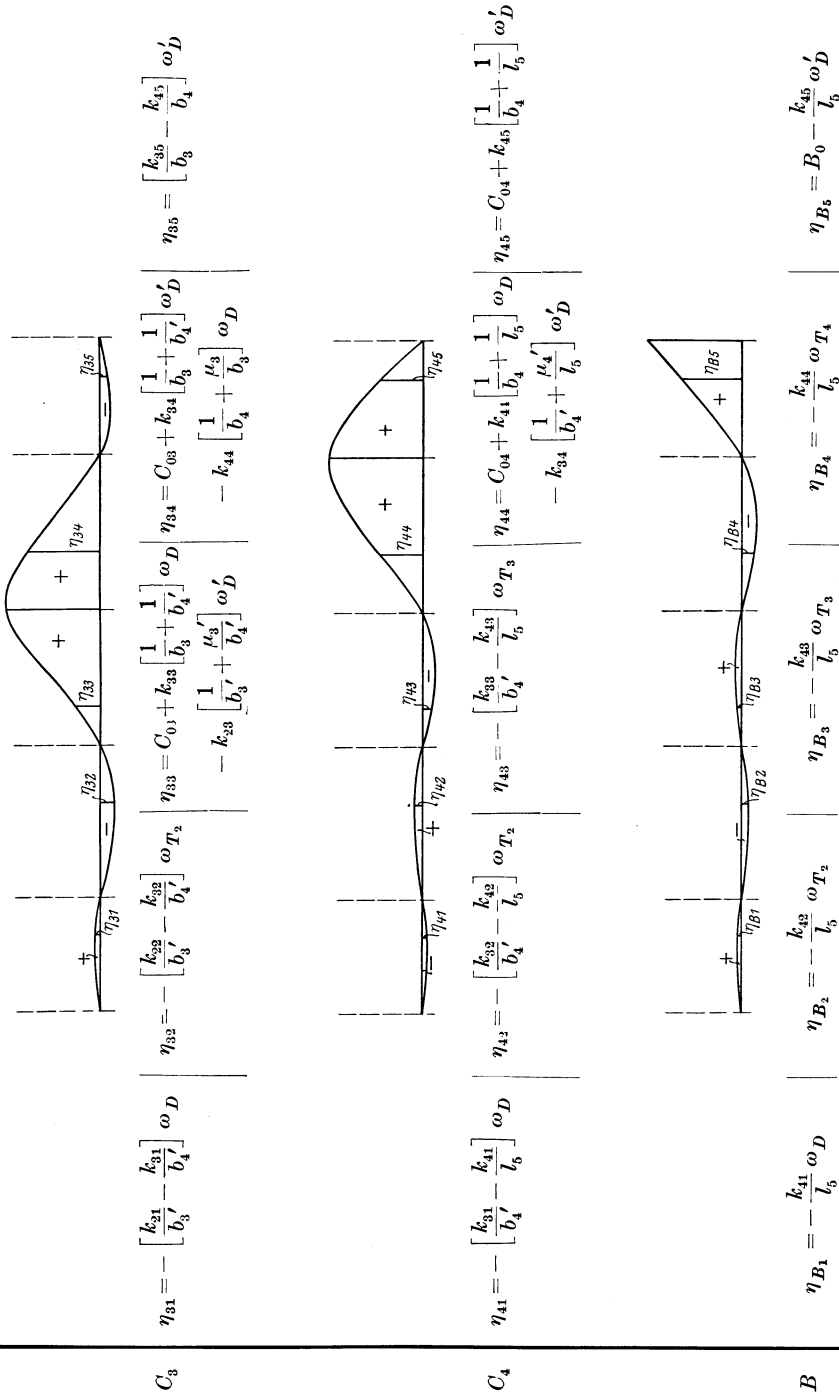 C₃
+
η₃₁
−
η₃₂
η₃₃
+
+
η₃₄
−
η₃₅
η₃₁ = − [k₂₁/b₃′ − k₃₁/b₄′] ω_D
η₃₂ = − [k₂₂/b₃′ − k₃₂/b₄′] ω_T₂
η₃₃ = C₀₃ + k₃₃ [1/b₃ + 1/b₄′] ω_D
− k₂₃ [1/b₃′ + μ₃′/b₄′] ω′_D
η₃₄ = C₀₃ + k₃₄ [1/b₃ + 1/b₄′] ω′_D
− k₄₄ [1/b₄ + μ₃/b₃] ω_D
η₃₅ = [k₃₅/b₃ − k₄₅/b₄] ω′_D
C₄
−
η₄₁
+
η₄₂
−
η₄₃
η₄₄
+
+
η₄₅
η₄₁ = − [k₃₁/b₄′ − k₄₁/l₅] ω_D
η₄₂ = − [k₃₂/b₄′ − k₄₂/l₅] ω_T₂
η₄₃ = − [k₃₃/b₄′ − k₄₃/l₅] ω_T₃
η₄₄ = C₀₄ + k₄₄ [1/b₄ + 1/l₅] ω_D
− k₃₄ [1/b₄′ + μ₄′/l₅] ω′_D
η₄₅ = C₀₄ + k₄₅ [1/b₄ + 1/l₅] ω′_D
B
+
η_B1
−
η_B2
+
η_B3
−
η_B4
+
η_B5
η_B₁ = − k₄₁/l₅ ω_D
η_B₂ = − k₄₂/l₅ ω_T₂
η_B₃ = − k₄₃/l₅ ω_T₃
η_B₄ = − k₄₄/l₅ ω_T₄
η_B₅ = B₀ − k₄₅/l₅ ω′_D